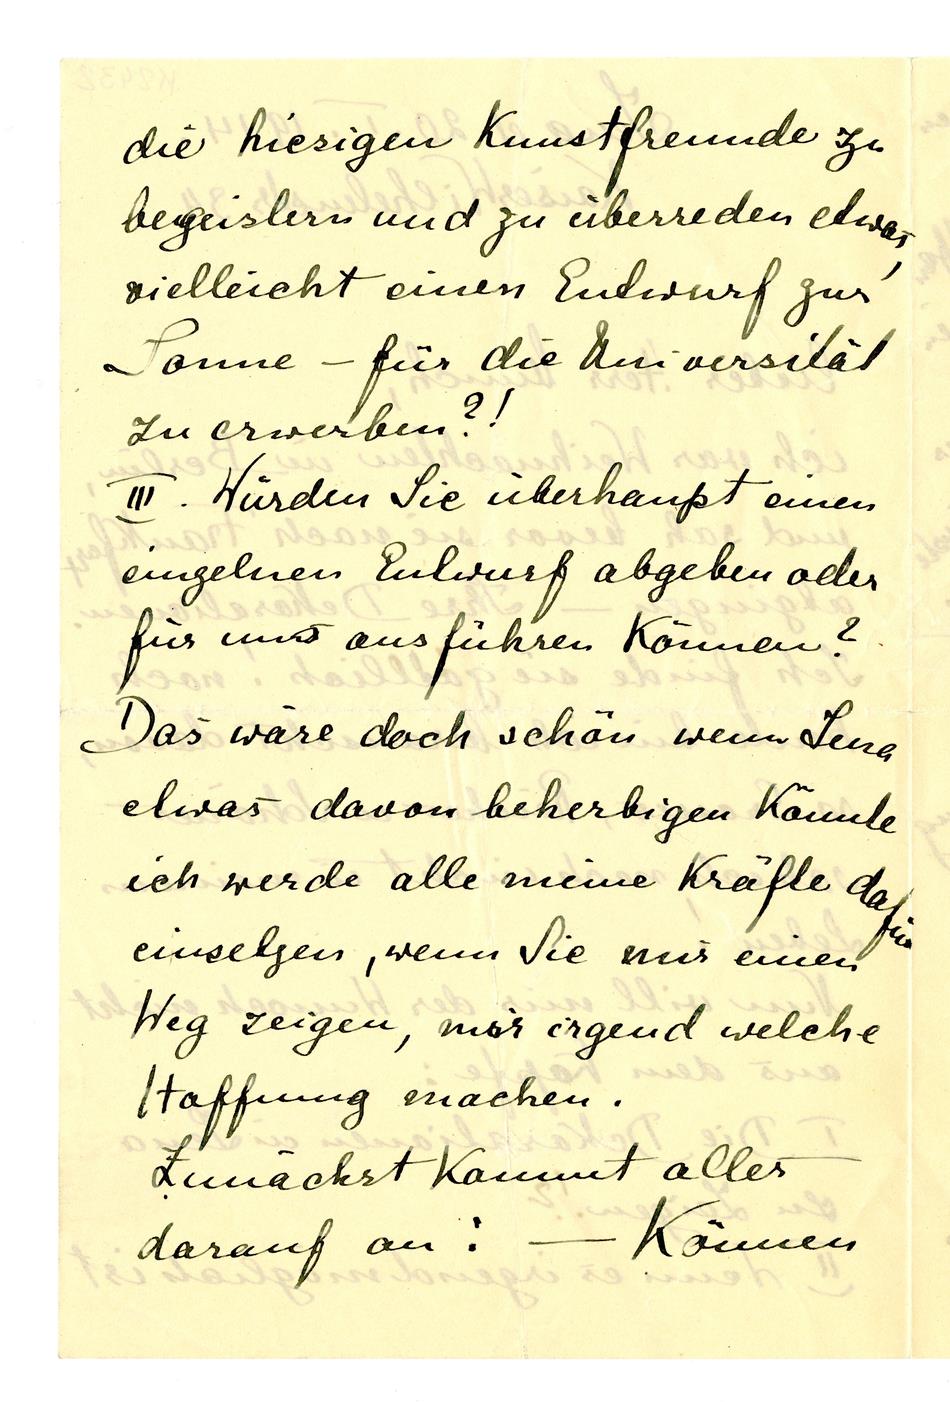 die hiesigen Kunstfreunde zu
begeistern und zu überreden etwas,
vielleicht einen Entwurf zur
Sonne – für die Universität
zu erwerben?!
III. Würden Sie überhaupt einen
einzelnen Entwurf abgeben oder
für uns ausführen Können?
Das wäre doch schön wenn Jena
etwas davon beherbigen Könnte
ich werde alle meine Kräfte dafür
einsetzen, wenn Sie mir einen
Weg zeigen, mir irgend welche
Hoffnung machen.
Zunächst Kommt alles
darauf an: — Können